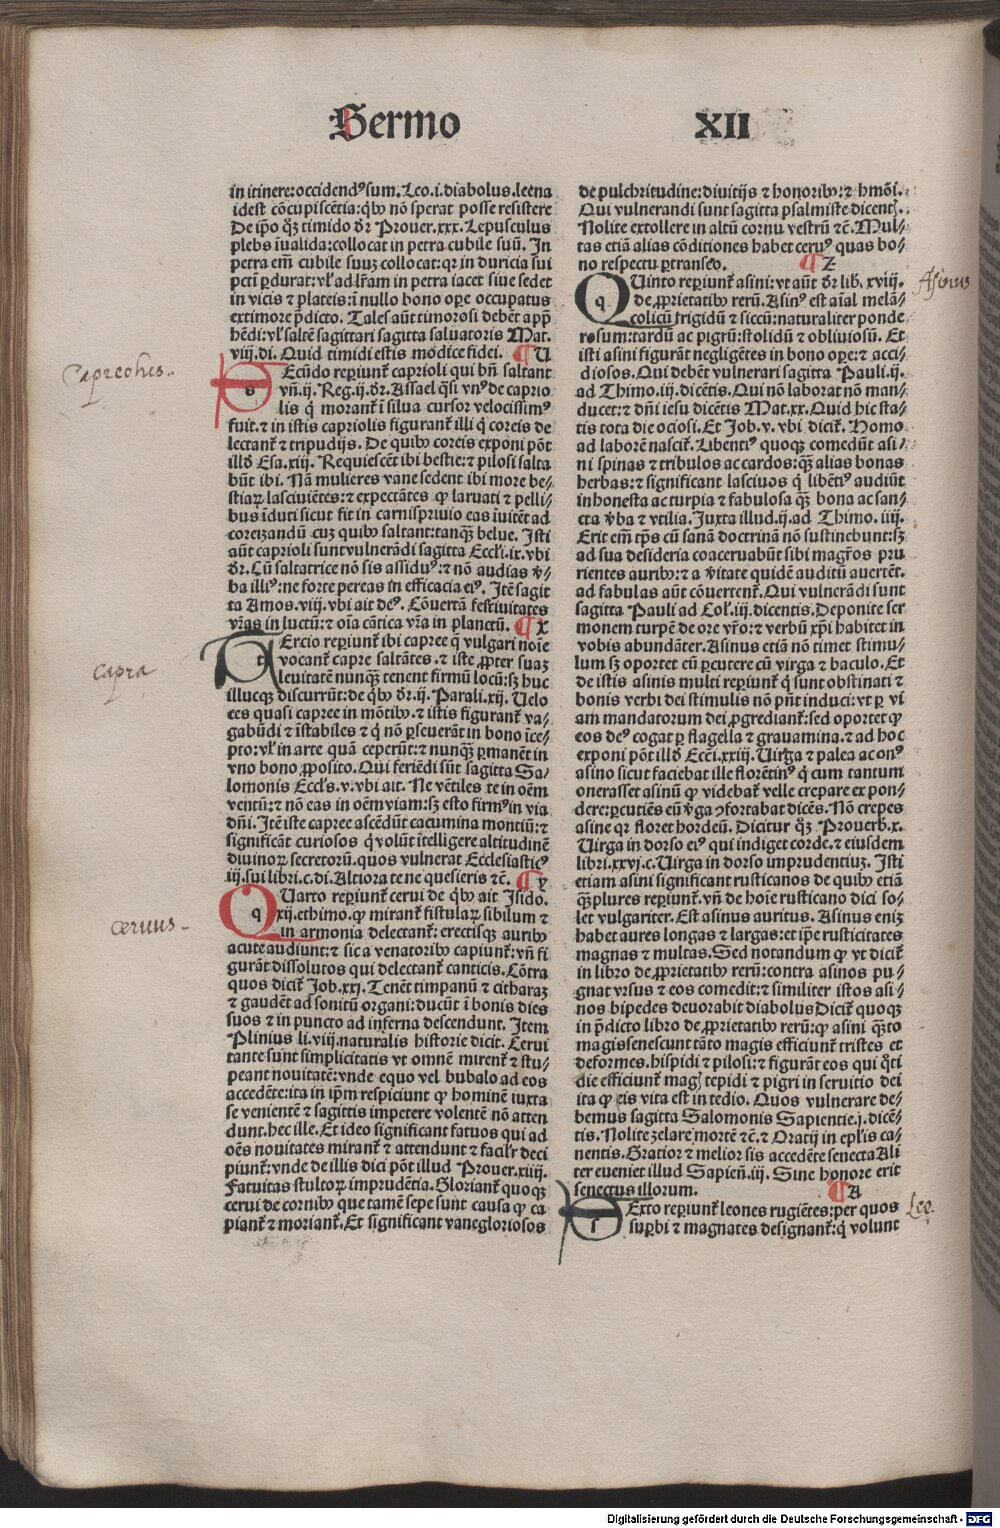 Sermo
XII
in itinere:occidendꝰsum.Leo.i.diabolus.leena
idest cōcupiscētia:q̄bꝫ nō sperat posse resistere
De ip̄o qꝫ timido dr̄ Prouer.xxx.Lepusculus
plebs īualida:collocat in petra cubile suū. In
petra em̄ cubile suuꝫ collocat:qr in duricia sui
pctī ꝑdurat:vl̓ ad lr̄am in petra iacet siue sedet
in vicis ⁊ plateis:ī nullo bono oꝑe occupatus
extimore p̄dicto. Tales aūt timorosi debēt app̄
hēdi:vl̓ saltē sagittari sagitta saluatoris Mat.
viij.di. Quid timidi estis modice fidei. ¶ V
Capreolus..
s Ecūdo reꝑiunt̄ caprioli qui bn̄ saltant
vn̄.ij. Reg.ij.dr̄. Assael q̄si vnꝰ de caprio
lis q̄ morant̄ ī silua cursor velocissimꝰ
fuit.⁊ in istis capriolis figurant̄ illi q̄ coreis de
lectant̄ ⁊ tripudijs. De quibꝫ coreis exponi pōt
illō Esa.xiij. Requiescēt ibi bestie:⁊ pilosi salta
būt ibi. Nā mulieres vane sedent ibi more be⸗
stiaꝝ lasciuiētes:⁊ expectātes ꝙ laruati ⁊ pelli⸗
bus īduti sicut fit in carnispriuio eas īuitēt ad
coreizandū cuꝫ quibꝫ saltant:tanqꝫ̄ belue. Isti
aūt caprioli sunt vulnerādi sagitta Eccl̓i.ix.vbi
dr̄. Cū saltatrice nō sis assiduꝰ:⁊ nō audias v̓⸗
ba illiꝰ:ne forte pereas in efficacia eiꝰ. Itē sagit
ta Amos.viij.vbi ait deꝰ. Cōuertā festiuitates
vr̄as in luctū:⁊ oīa cātica vr̄a in planctū. ¶ X
capra
t Ercio reꝑiunt̄ ibi capree q̄ vulgari noīe
vocant̄ capre saltātes.⁊ iste ꝓpter suaꝫ
leuitatē nunqꝫ̄ tenent firmū locū:sꝫ huc
illucqꝫ discurrūt:de q̄bꝫ dr̄.ij. Parali.xij. Velo
ces quasi capree in mōtibꝫ.⁊ istis figurant̄ va⸗
gabūdi ⁊ īstabiles ⁊ q̄ nō ꝑseuerāt in bono īce⸗
pto:vl̓ in arte quā ceperūt:⁊ nunqꝫ̄ ꝑmanēt in
vno bono ꝓposito. Qui feriēdi sūt sagitta Sa⸗
lomonis Eccl̓s.v.vbi ait. Ne vētiles te in oēm
ventū:⁊ nō eas in oēm viam:sꝫ esto firmꝰin via
dn̄i. Itē iste capree ascēdūt cacumina montiū:⁊
significāt curiosos q̄ volūt ītelligere altitudinē
diuinoꝝ secretorū.quos vulnerat Ecclesiasticꝰ
iij.sui libri.c.di.Altiora te ne quesieris ⁊c̄. ¶ y
ceruus-
q Uarto reꝑiunt̄ cerui de q̄bꝫ ait Isido.
xij.ethimo.ꝙ mirant̄ fistulaꝝ sibilum ⁊
in armonia delectant̄: erectisqꝫ auribꝫ
acute audiunt:⁊ sic a venatoribꝫ capiunt̄:vn̄ fi
gurāt dissolutos qui delectant̄ canticis. Cōtra
quos dicit̄ Job.xxj. Tenēt timpanū ⁊ citharaꝫ
⁊ gaudēt ad sonitū organi:ducūt ī bonis dies
suos ⁊ in puncto ad inferna descendunt. Item
Plinius li.viij.naturalis historie dicit. Cerui
tante sunt simplicitatis vt omnē mirent̄ ⁊ stu⸗
peant nouitatē:vnde equo vel bubalo ad eos
accedēte:ita in ip̄m respiciunt ꝙ hominē iuxta
se venientē ⁊ sagittis impetere volentē nō atten
dunt.hec ille. Et ideo significant fatuos qui ad
oēs nouitates mirant̄ ⁊ attendunt ⁊ facil̓r deci
piunt̄:vnde de illis dici pōt illud Prouer.xiiij.
Fatuitas stultoꝝ imprudētia. Gloriant̄ quoqꝫ
cerui de cornibꝫ que tamē sepe sunt causa ꝙ ca
piant̄ ⁊ moriant̄.Et significant vanegloriosos
de pulchritudine:diuitijs ⁊ honoribꝫ:⁊ hmōi.
Qui vulnerandi sunt sagitta psalmiste dicentꝭ.
Nolite extollere in altū cornu vestrū ⁊c̄. Mul⸗
tas etiā alias cōditiones habet ceruꝰ quas bo⸗
no respectu ꝑtranseo. ¶ Z
Asinus
q Uinto reꝑiunt̄ asini:vt aūt dr̄ lib. xviij.
de ꝓprietatibꝫ rerū. Asinꝰ est aīal melā⸗
colicū frigidū ⁊ siccū:naturaliter ponde
rosum:tardū ac pigrū:stolidū ⁊ obliuiosū. Et
isti asini figurāt negligētes in bono oꝑe:⁊ acci⸗
diosos. Qui debēt vulnerari sagitta Pauli.ij.
ad Thimo.iij.dicētis. Qui nō laborat nō man⸗
ducet:⁊ dn̄i iesu dicētis Mat.xx. Quid hic sta⸗
tis tota die ociosi. Et Job.v. vbi dicit̄. Homo
ad laborē nascit̄. Libentiꝰ quoqꝫ comedūt asi⸗
ni spinas ⁊ tribulos ac cardos:qꝫ̄ alias bonas
herbas:⁊ significant lasciuos q̄ libētiꝰ audiūt
inhonesta ac turpia ⁊ fabulosa qꝫ̄ bona ac san⸗
cta v̓ba ⁊ vtilia. Juxta illud.ij.ad Thimo. iiij.
Erit em̄ tp̄s cū sanā doctrinā nō sustinebunt:sꝫ
ad sua desideria coaceruabūt sibi magr̄os pru
rientes auribꝫ:⁊ a v̓itate quidē auditū auertēt.
ad fabulas aūt cōuertent̄. Qui vulnerādi sunt
sagitta Pauli ad Col̓.iij.dicentis. Deponite ser
monem turpē de ore vr̄o:⁊ verbū xp̄i habitet in
vobis abundāter. Asinus etiā nō timet stimu⸗
lum sꝫ oportet cū ꝑcutere cū virga ⁊ baculo. Et
de istis asinis multi reꝑiunt̄ q̄ sunt obstinati ⁊
bonis verbi dei stimulis nō pn̄t induci:vt ꝑ vi
am mandatorum dei ꝓgrediant̄:sed oportet ꝙ
eos deꝰ cogat ꝑ flagella ⁊ grauamina.⁊ ad hoc
exponi pōt illō Ecci.xxiij. Uirga ⁊ palea ac onꝰ
asino sicut faciebat ille florētinꝰ q̄ cum tantum
onerasset asinū ꝙ videbat̄ velle crepare ex pon⸗
dere:ꝑcutiēs eū v̓ga ꝯfortabat dicēs. Nō crepes
asine qr floret hordeū. Dicitur qꝫ Prouerb.x.
Uirga in dorso eiꝰ qui indiget corde.⁊ eiusdem
libri.xxvi.c. Uirga in dorso imprudentiuꝫ. Isti
etiam asini significant rusticanos de quibꝫ etiā
qꝫ̄plures reꝑiunt̄.vn̄ de hoie rusticano dici so⸗
let vulgariter. Est asinus auritus. Asinus eniꝫ
habet aures longas ⁊ largas:et ip̄e rusticitates
magnas ⁊ multas. Sed notandum ꝙ vt dicit̄
in libro de ꝓprietatibꝫ rerū:contra asinos pu⸗
gnat vrsus ⁊ eos comedit:⁊ similiter istos asi⸗
nos bipedes deuorabit diabolus Dicit̄ quoqꝫ
in p̄dicto libro de ꝓprietatibꝫ rerū:ꝙ asini qꝫ̄to
magis senescunt tāto magis efficiunt̄ tristes et
deformes.hispidi ⁊ pilosi:⁊ figurāt eos qui q̄ti
die efficiunt̄ magꝭ tepidi ⁊ pigri in seruitio dei
ita ꝙ eis vita est in tedio. Quos vulnerare de⸗
bemus sagitta Salomonis Sapientie.j.dicē⸗
tis. Nolite zelare mortē ⁊c̄.⁊ Oratij in epl̓is ca⸗
nentis. Gratior ⁊ melior sis accedēte senecta Ali
ter eueniet illud Sapien̄.iij. Sine honore erit
senectus illorum. ¶ A
Leo.
s Exto reꝑiunt̄ leones rugiētes:per quos
suꝑbi ⁊ magnates designant̄:q̄ volunt
Digitalisierung gefördert durch die Deutsche Forschungsgemeinschaft - DFG